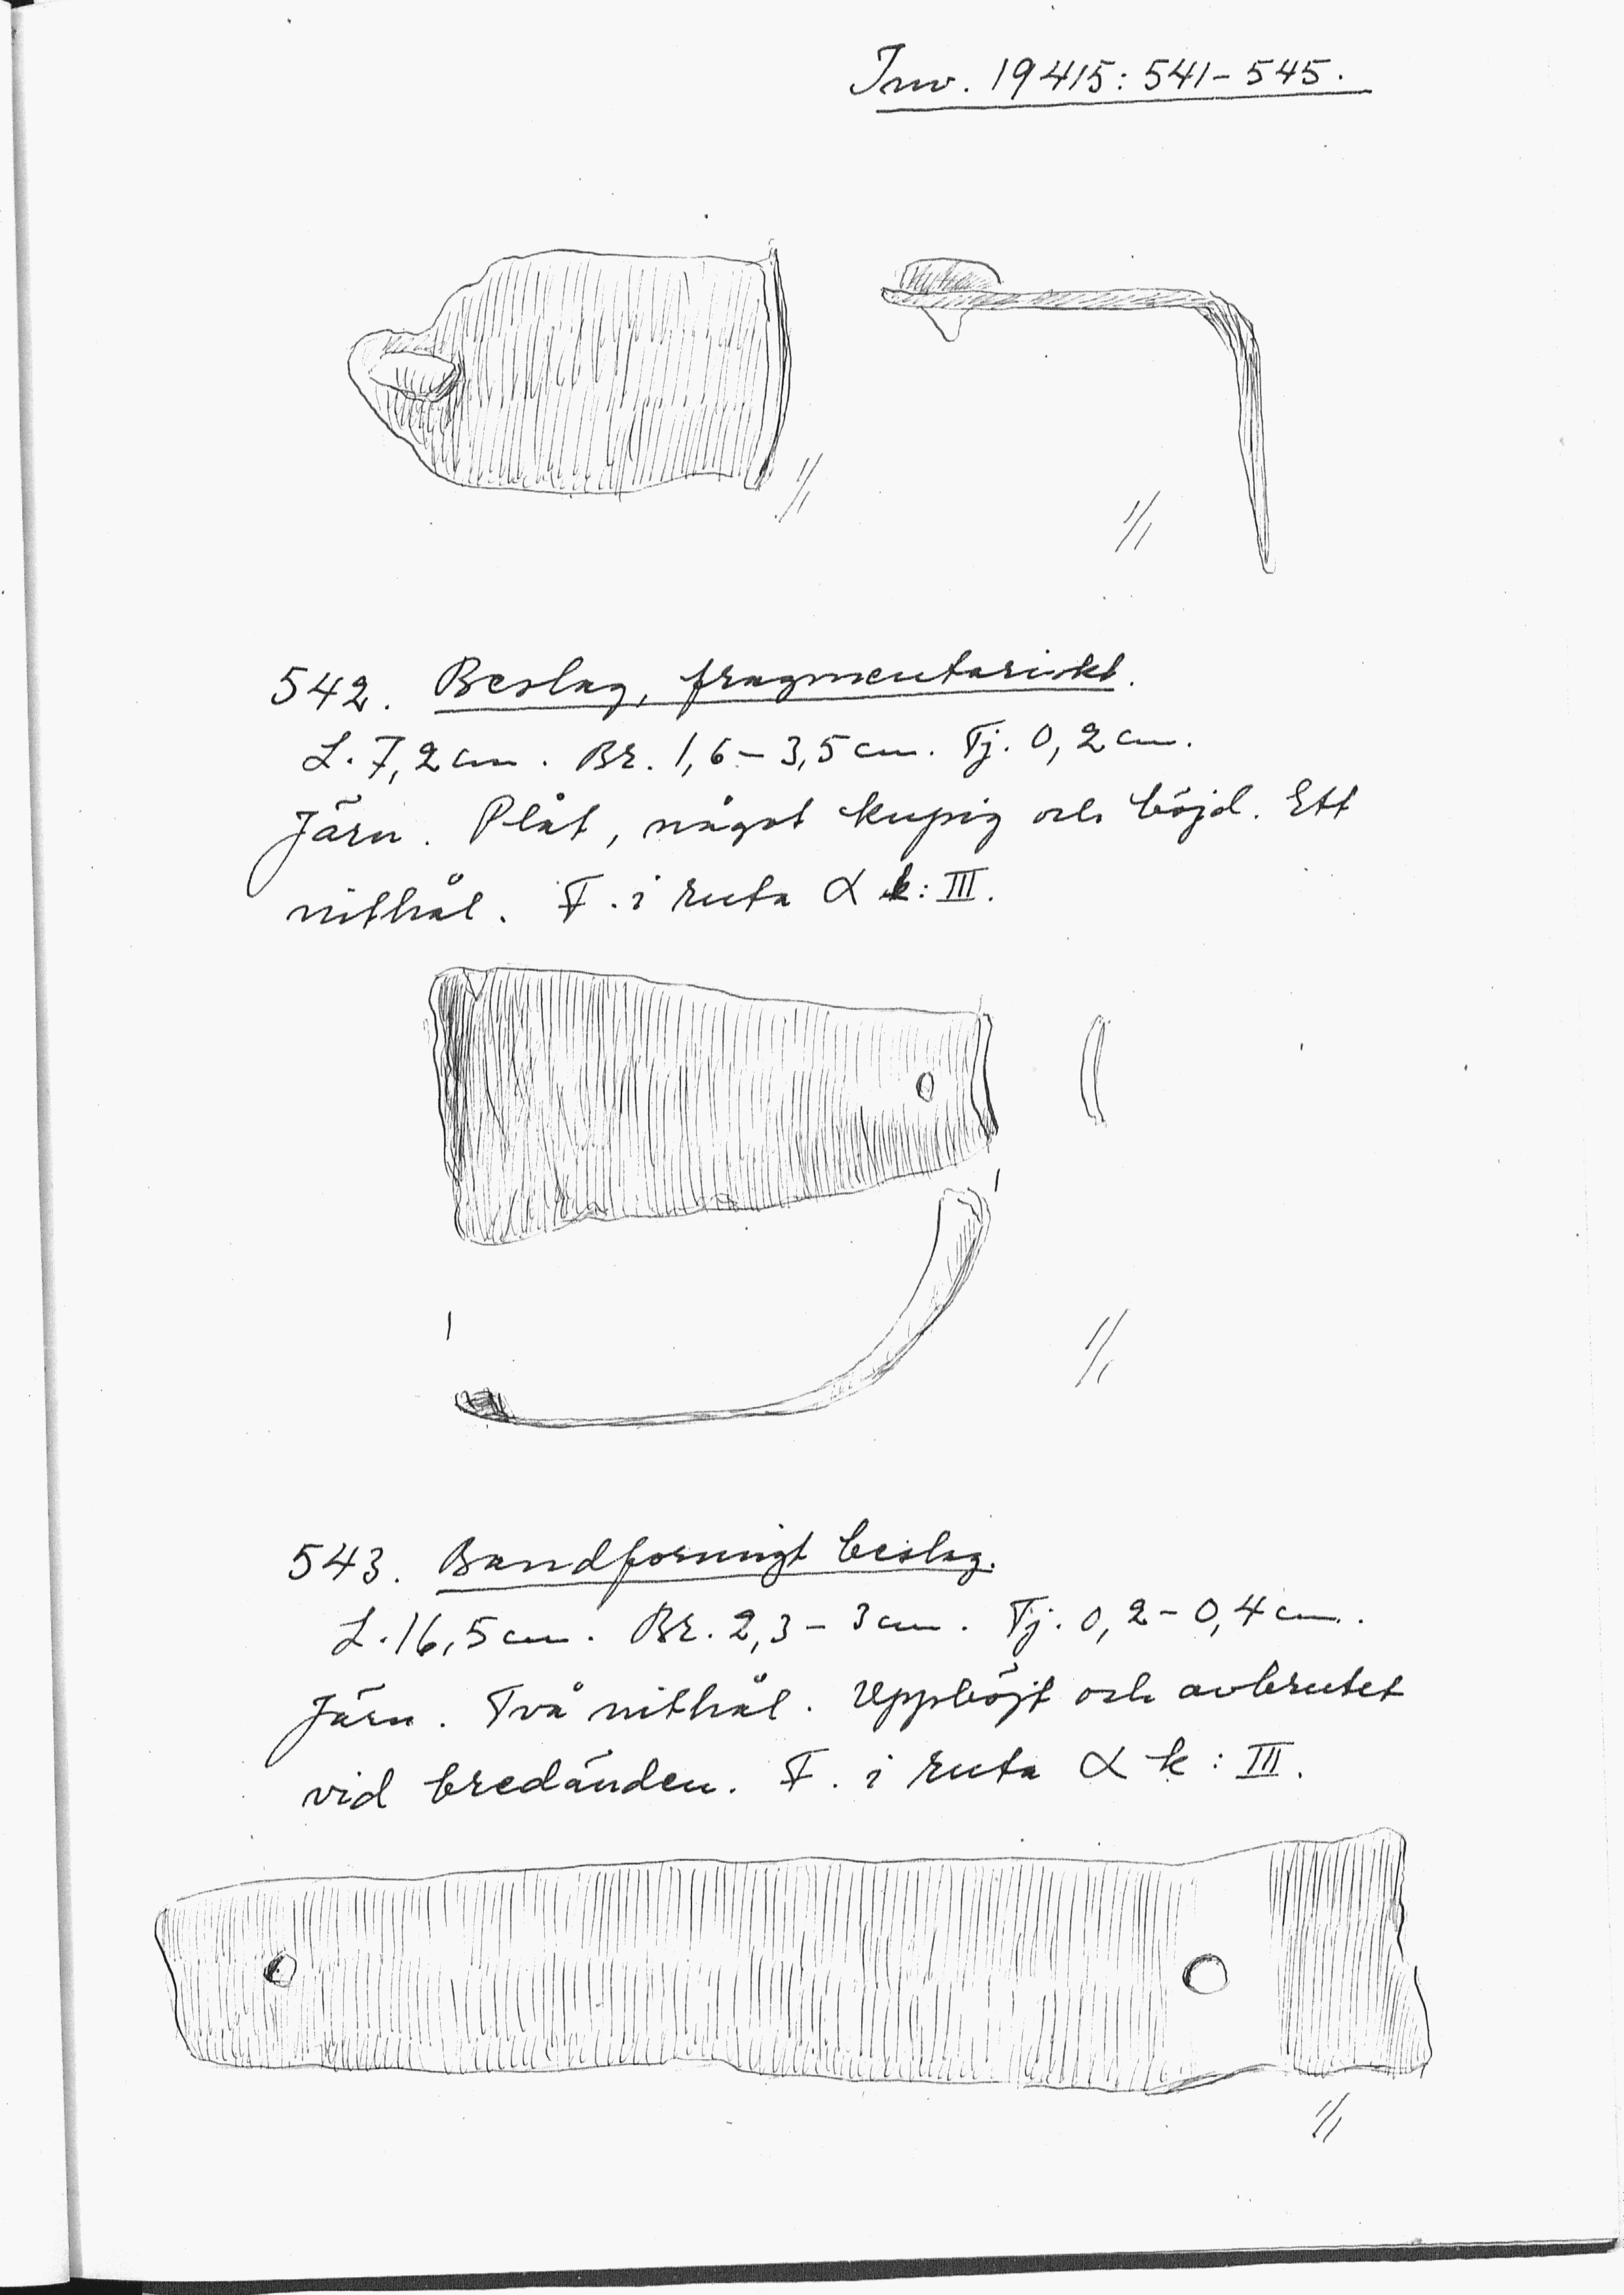 Inv. 19415: 541-545.
1/1
1/1
542. Beslag, fragmentariskt.
L. 7,2 cm. Br. 1,6-3,5 cm. Tj. 0,2 cm.
Järn. Plåt, något kupig och böjd. Ett
nithål. F. i ruta α k: III.
1/1
543. Bandformigt beslag.
L. 16,5 cm. Br. 2,3-3 cm. Tj. 0,2-0,4 cm.
Järn. Två nithål. Uppböjt och avbrutet
vid bredänden. F. i ruta α k: III.
1/1